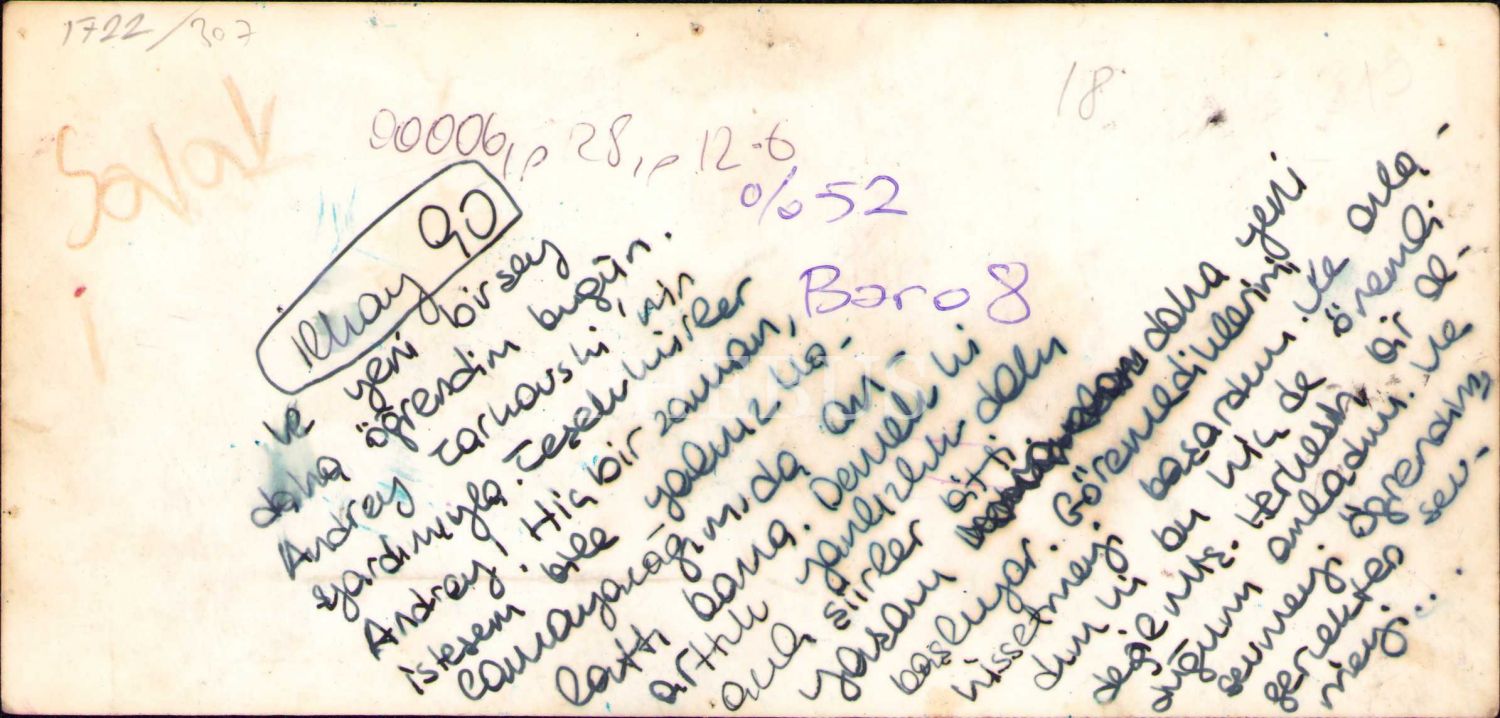 1722/307
18
Salak
00006,, 28,, 12.6
%52
Baro 8
ilkay 90
ve yeni birşey
daha öğrendim bugün.
Andrey Tarkovski'nin
yardımıyla. Teşekkürler
Andrey! Hiç bir zaman,
istesem bile yalnız ka-
lamayacağımı da an-
lattı bana. Demek ki
artık yanlızlık dolu
acılı şiirler bitti.
yaşam daha yeni
başlıyor. Göremediklerimi
hissetmeyi başardım. Ve anla-
dım ki bu hiç de önemli
değilmiş. Herkesin bir de-
diğini anladım. Ve
sevmeyi öğrendim,
gerçekten sev-
meyi...
HEBUS